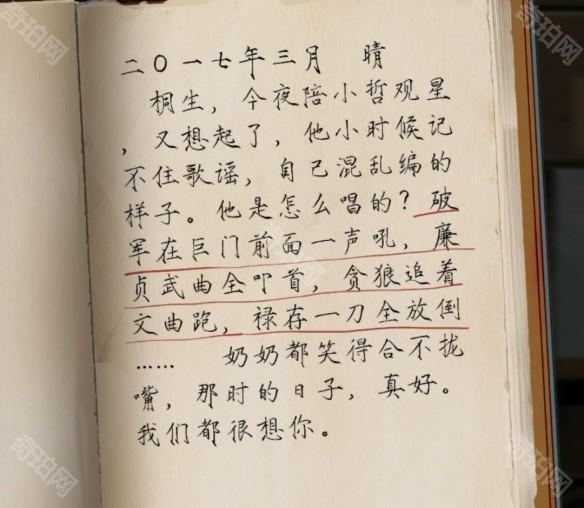 二〇一七年三月 晴
桐生，今夜陪小哲观星
，又想起了，他小时候记
不住歌谣，自己混乱编的
样子。他是怎么唱的？破
军在巨门前面一声吼，廉
贞武曲全叩首，贪狼追着
文曲跑，禄存一刀全放倒
…… 奶奶都笑得合不拢
嘴，那时的日子，真好。
我们都很想你。
奇珀网
奇珀网
奇珀网
奇珀网
奇珀网